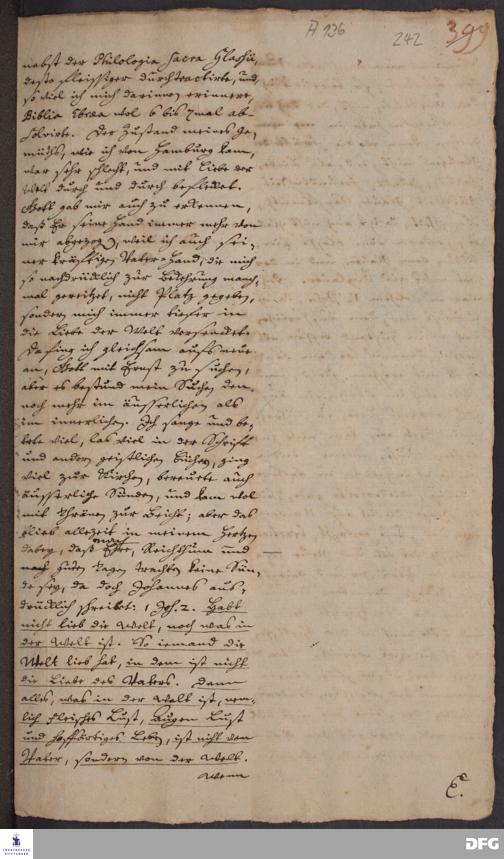 A 136
242
399
nebst der Philologia Sacra Glassii,
desto fleissiger durchtractirte, und,
so viel ich mich darinnen erinnere,
Biblia Ebraa wol 6 bis 7 mal ab-
solvirte. Der Zustand meines Ge-
müths, wie ich von Hamburg kam,
war sehr schlecht, und mit Liebe der
Welt durch und durch beflecket.
Gott gab mir auch zu erkennen,
daß Er seine Hand immer mehr von
mir abgezogen, weil ich auch sei-
ner kräfftigen Vater-Hand, die mich
so nachdrücklich zur Bekehrung manch-
mal gereitzet, nicht Platz gegeben,
sondern mich immer tieffer in
die Liebe der Welt versencket.
Da fing ich gleichsam aufs neue
an, Gott mit Ernst zu suchen,
aber es bestund mein Suchen den-
noch mehr im äusserlichen als
im innerlichen. Ich sange und be-
tete viel, las viel in der Schrifft
und andern geistlichen Bücher, ging
viel zur Kirchen, bereuete auch
äusserliche Sünden, und kam wol
mit Thränen zur Beicht; aber das
blieb allezeit in meinem Hertzen
dabey, daß nach Ehre, Reichthum und
nach guten Tagen trachten keine Sün-
de sey, da doch Johannes aus-
drücklich schreibet: 1 Joh. 2. Habt
nicht lieb die Welt, noch was in
der Welt ist. So iemand die
Welt lieb hat, in dem ist nicht
die Liebe des Vaters. Denn
alles, was in der Welt ist, nem-
lich Fleisches Lust, Augen Lust
und hoffärtiges Leben, ist nicht vom
Vater, sondern von der Welt.
Wenn
E.
FRANCKESCHE STIFTUNGEN
DFG